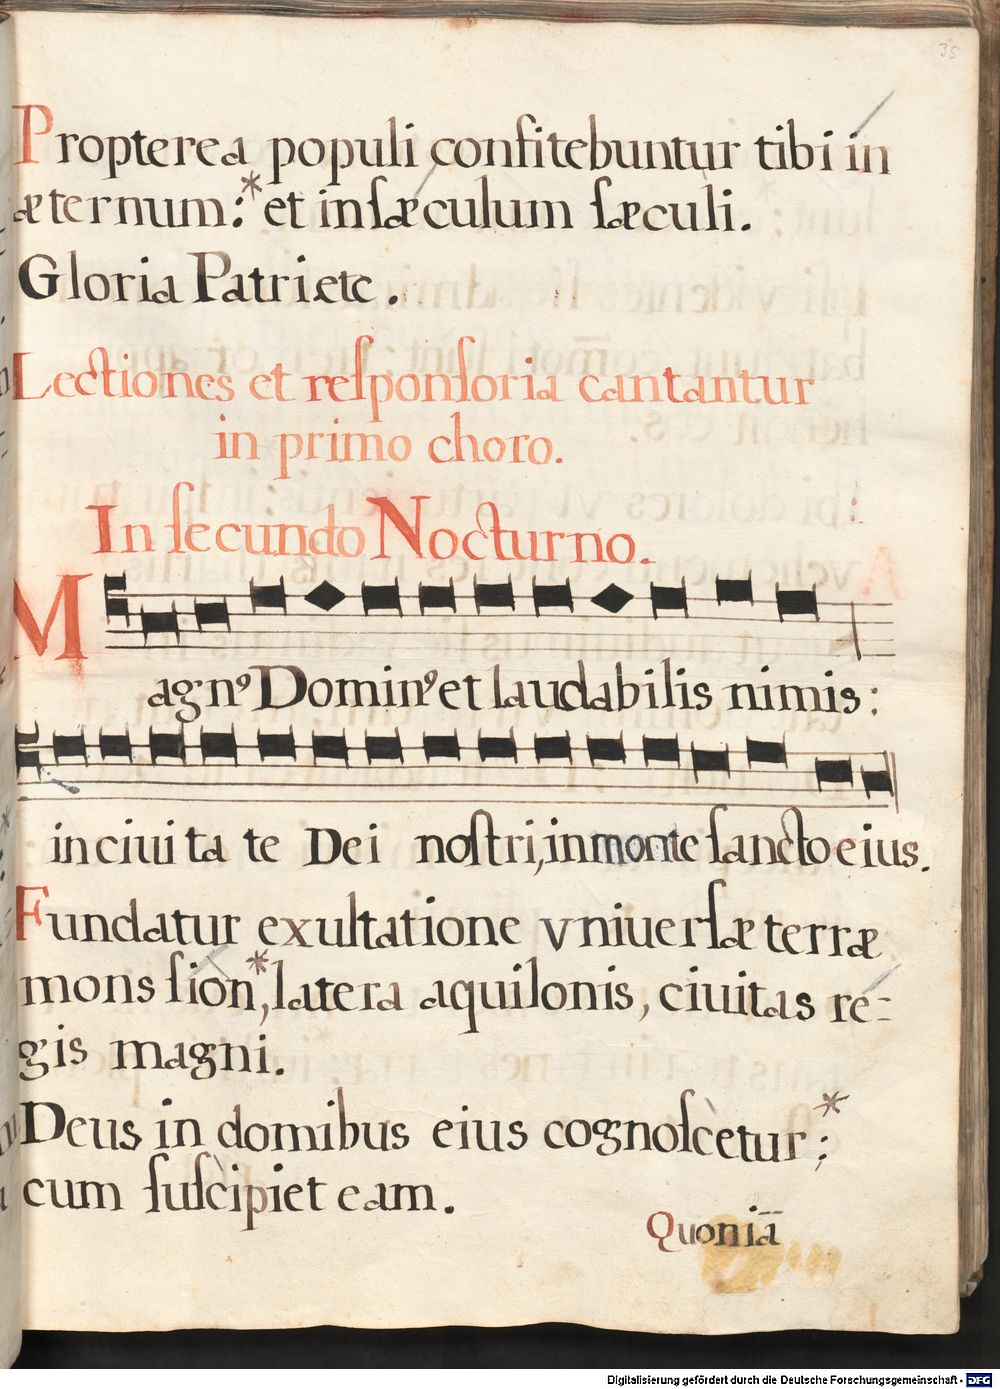 35
Propterea populi confitebuntur tibi in
æternum:* et in sæculum sæculi.
Gloria Patri etc.
Lectiones et responsoria cantantur
in primo choro.
In secundo Nocturno.
Magnꝰ Dominꝰ et laudabilis nimis:
in ciuitate Dei nostri, in monte sancto eius.
Fundatur exultatione vniuersæ terræ
mons sion,* latera aquilonis, ciuitas re-
gis magni.
Deus in domibus eius cognoscetur;*
cum suscipiet eam.
Quoniā
Digitalisierung gefördert durch die Deutsche Forschungsgemeinschaft - DFG